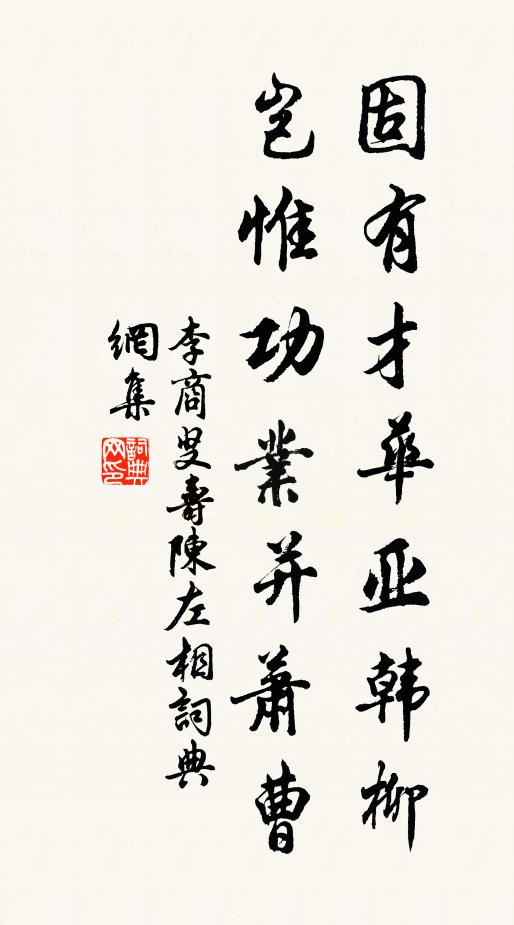 固有才華亚韩柳
岂惟功業并蕭曹
李商叟壽陳左相詞典
網集
詞典
网印